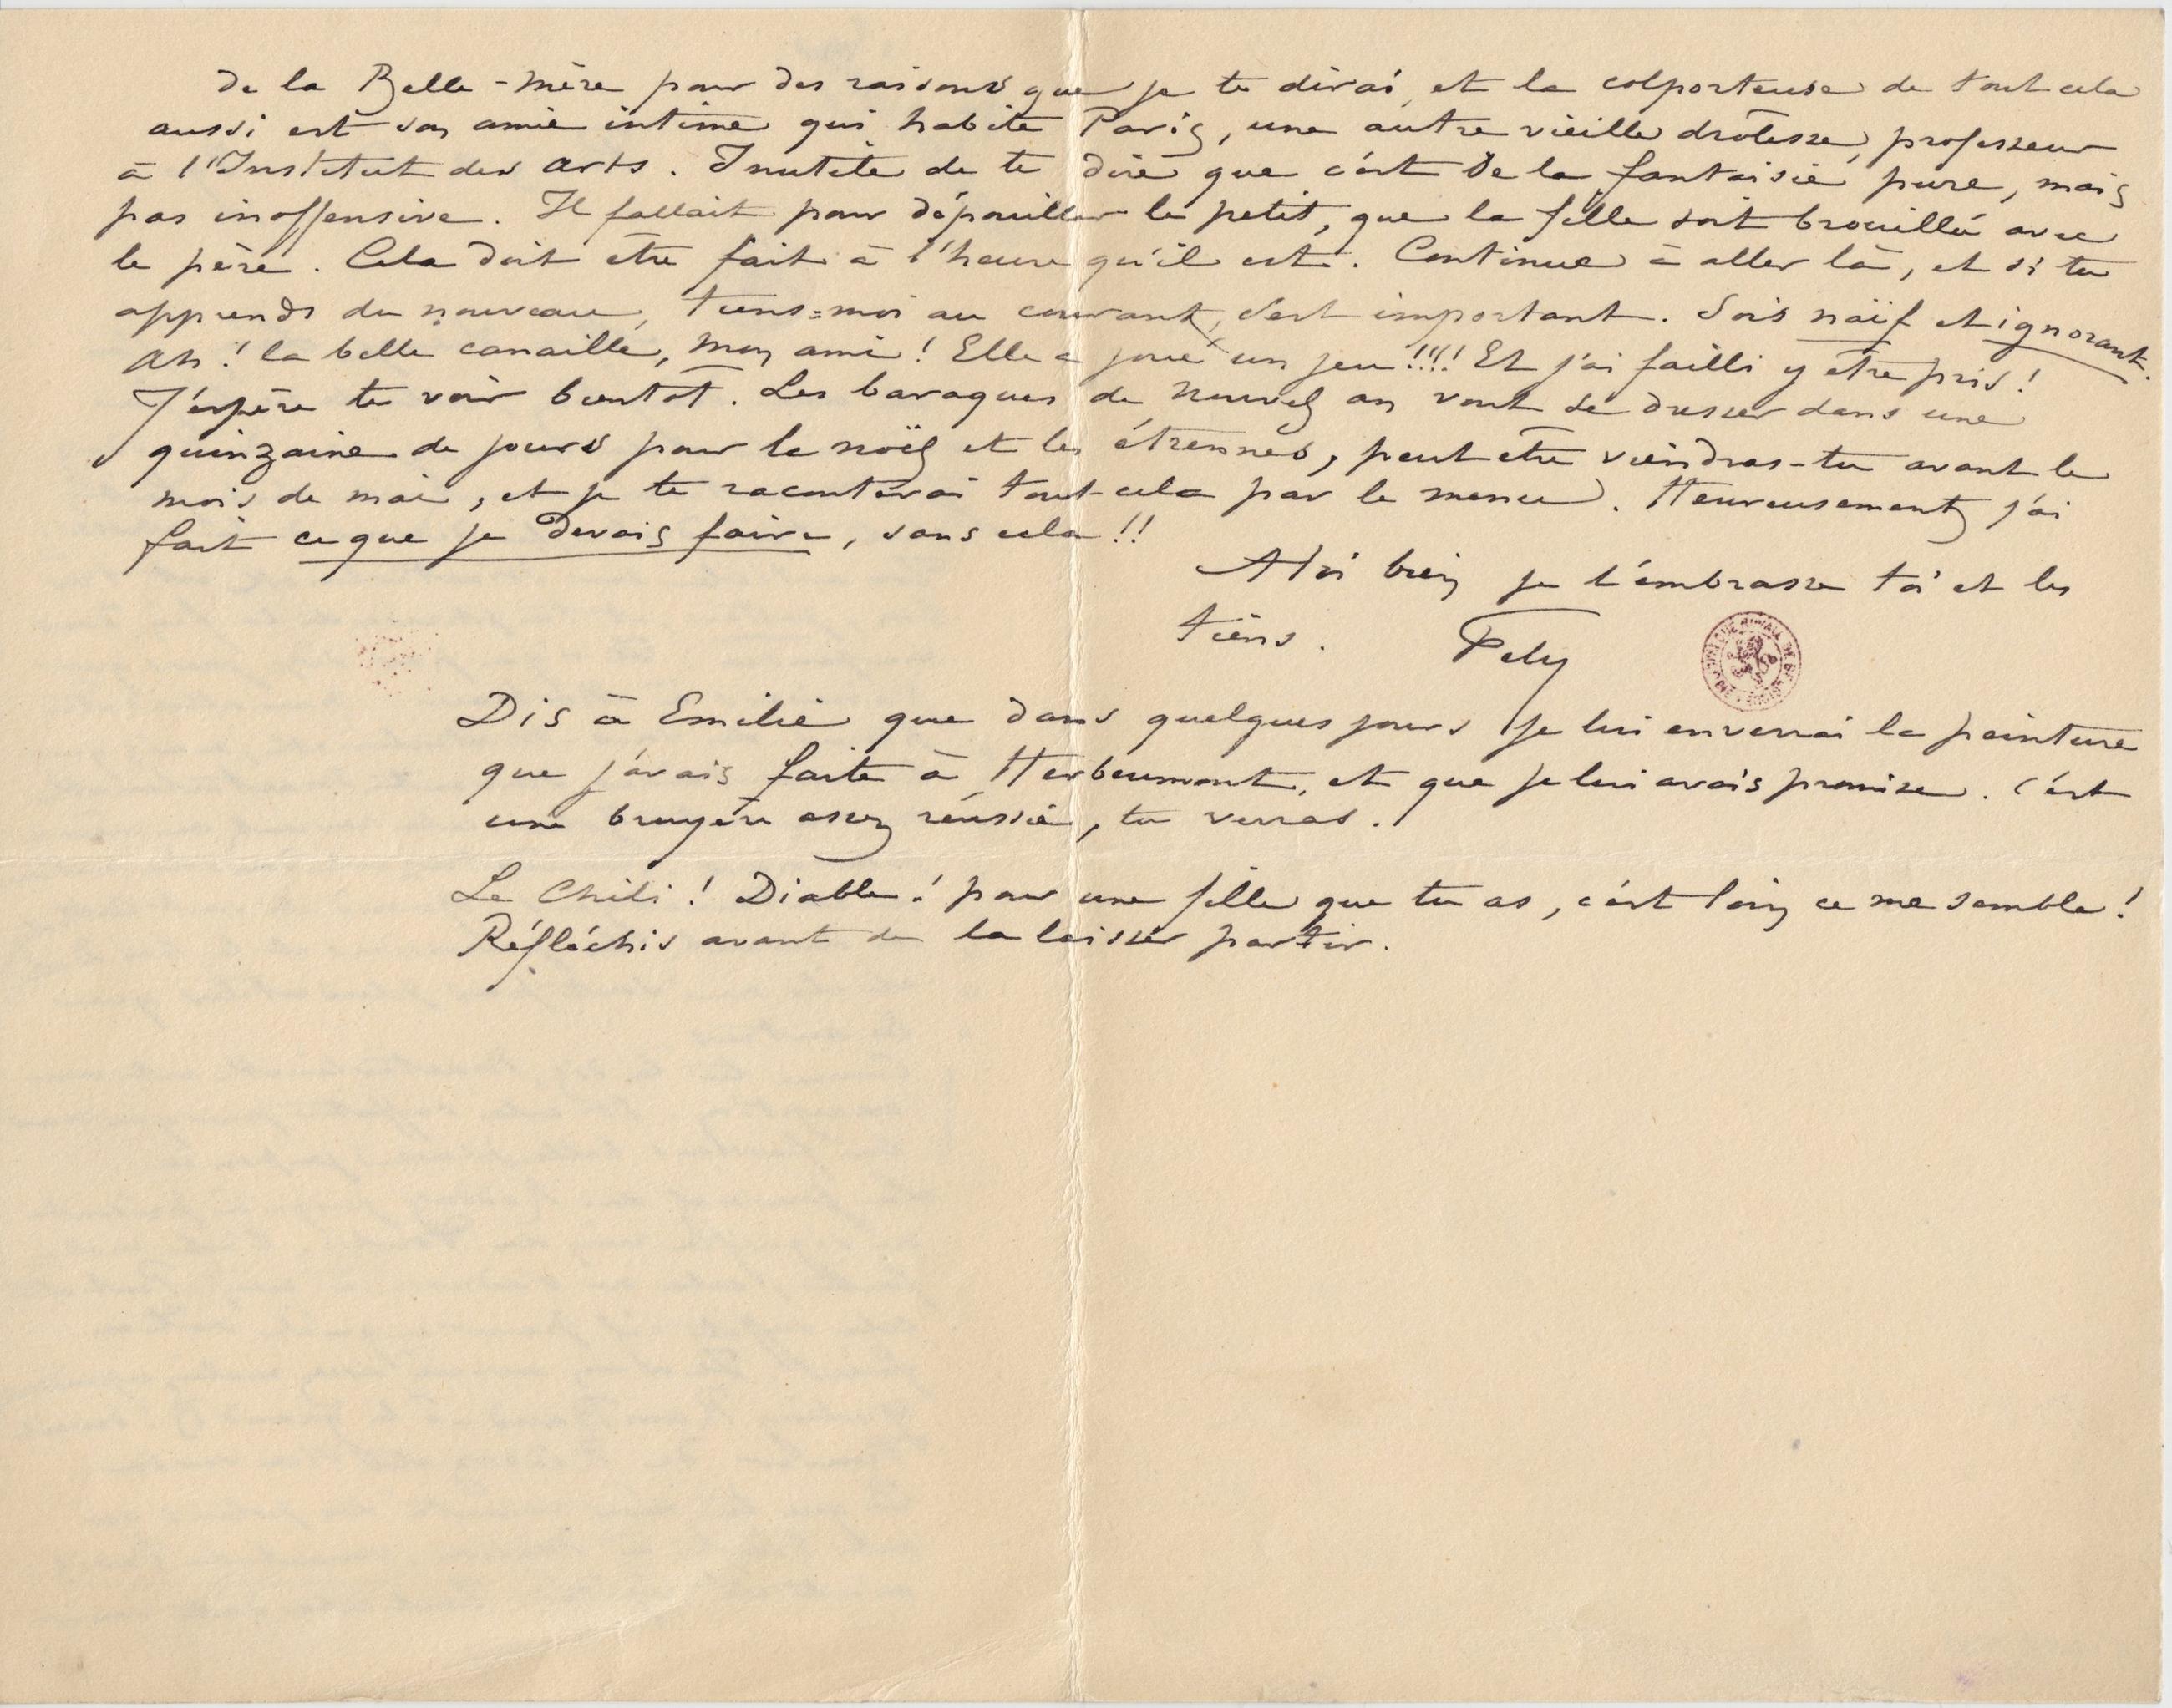 de la Belle-mère pour des raisons que je te dirai, et la colporteuse de tout cela
aussi est son amie intime qui habite Paris, une autre vieille drôlesse, professeur
à l'Institut des Arts. Inutile de te dire que c'est de la fantaisie pure, mais
pas inoffensive. Il fallait pour dépouiller le petit, que la fille soit brouillée avec
le père. Cela doit être fait à l'heure qu'il est. Continue à aller là, et si tu
apprends du nouveau, tiens=moi au courant, c'est important. Sois naïf et ignorant.
Ah! la belle canaille, mon ami! Elle a joué un jeu!!!! Et j'ai failli y être pris!
J'espère te voir bientôt. Les baraques de nouvel an vont se dresser dans une
quinzaine de jours pour le noël et les étrennes, peut être viendras-tu avant le
mois de mai, et je te raconterai tout cela par le menu. Heureusement j'ai
fait ce que je devais faire, sans cela!!
A toi bien je t'embrasse toi et les
tiens. Fely
Dis à Emilie que dans quelques jours je lui enverrai la peinture
que j'avais faite à Herbeumont, et que je lui avais promise. C'est
une bruyère assez réussie, tu verras.
Le Chili! Diable! pour une fille que tu as, c'est loin ce me semble!
Réfléchis avant de la laisser partir.